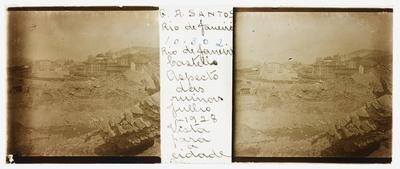 G. A. SANTOS
Rio de Janeiro
10.802
Rio de Janeiro
Castello
Aspecto
das
ruinas
Julho
-1928
Vista
para
a
cidade